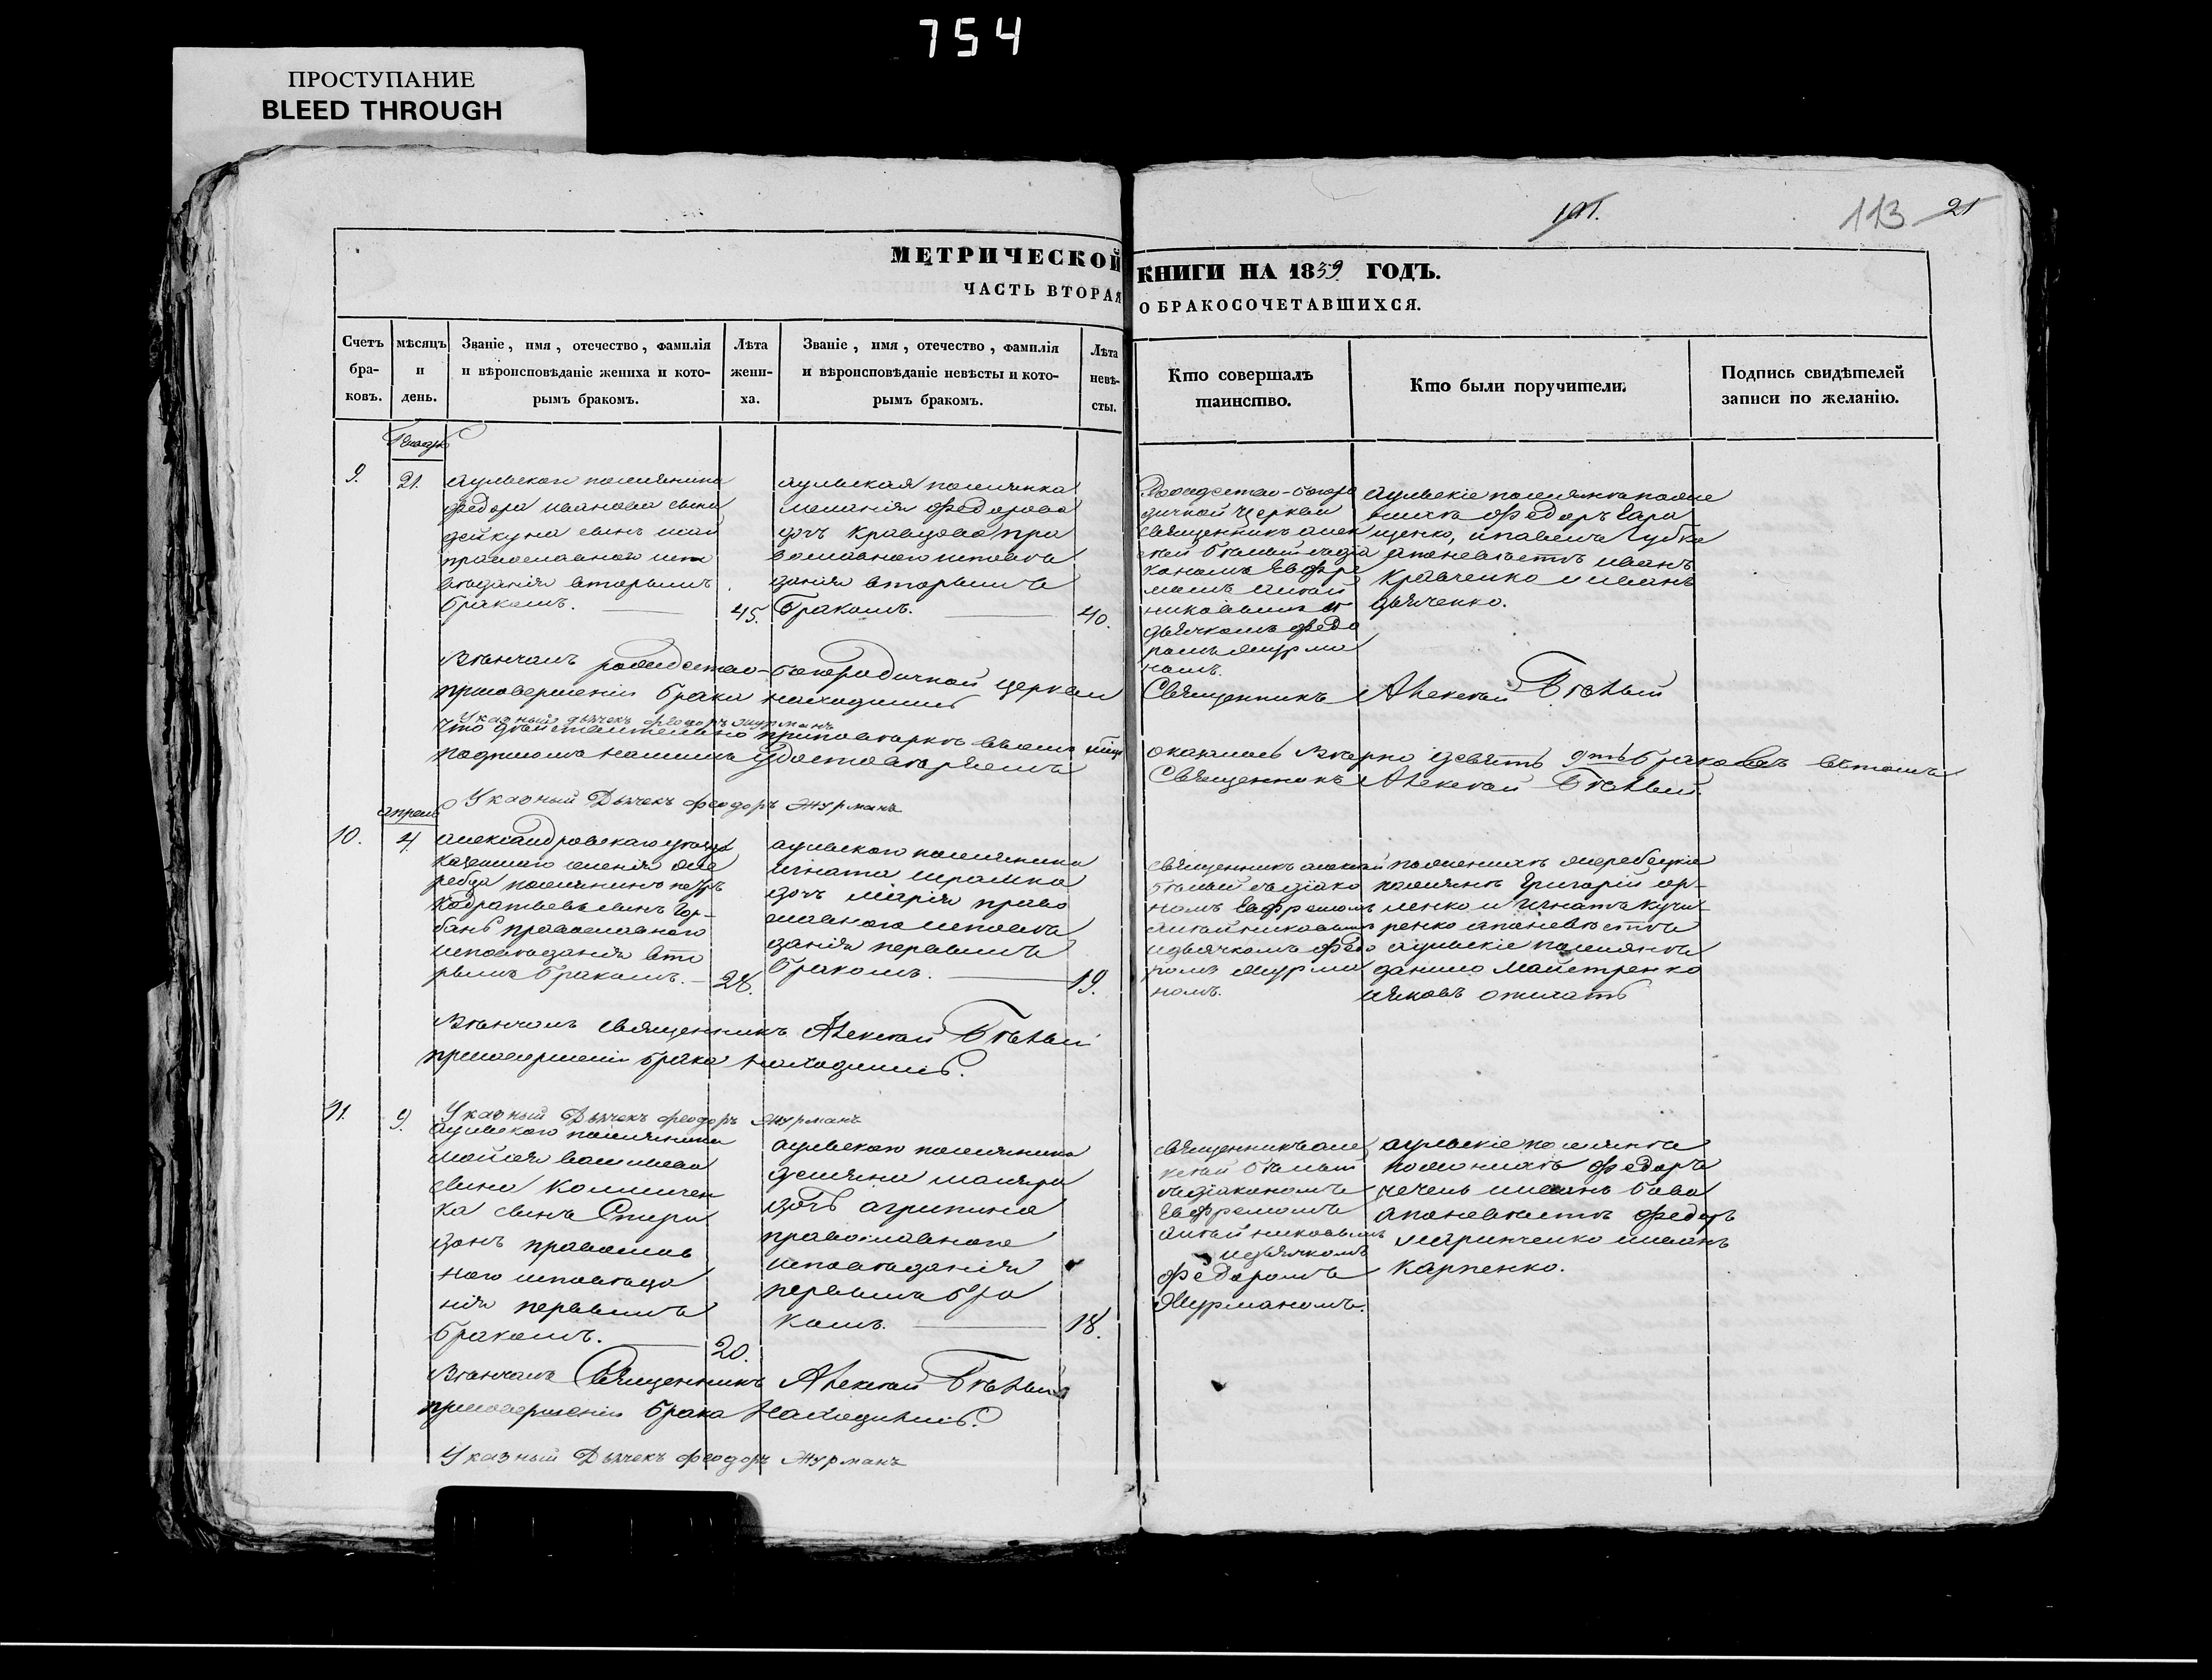 754
ПРОСТУПАНИЕ
BLEED THROUGH
101.
113
21
МЕТРИЧЕСКОЙ КНИГИ НА 1839 ГОДЪ.
ЧАСТЬ ВТОРАЯ О БРАКОСОЧЕТАВШИХСЯ.
Счетъ бра-ковъ.
мѣсяцъ и день.
Званіе, имя, отечество, фамилія
и вѣроисповѣданіе жениха и кото-
рымъ бракомъ.
Лѣта жени-ха.
Званіе, имя, отечество, фамилія
и вѣроисповѣданіе невѣсты и кото-
рымъ бракомъ.
Лѣта невѣ-сты.
Кто совершалъ
таинство.
Кто были поручители.
Подпись свидѣтелей
записи по желанію.
9.
21.
аульского поселянина
федора иванова сына
сынъ
православного испо
вѣданія вторымъ
бракомъ.
45.
аульская поселянка
федорова
дочь кравцова пра
вославного исповѣ
данія вторымъ
бракомъ.
40.
Рождество-богоро
дичной церкви
священникъ алек
сѣй бѣлый съ діа
кономъ Евфре
момъ
и
дьячкомъ федо
ромъ журма
номъ.
аульскіе поселяне по же
нихѣ федоръ
щенко, и павелъ губка
а по невѣстѣ иванъ
кравченко и иванъ
дьяченко.
Вѣнчалъ рождество-богородичной церкви Священникъ Алексѣй Бѣлый
при совершеніи брака находился
Указный дьячекъ феодоръ журманъ
что дѣйствительно при повѣркѣ въ семъ мѣс. оказалось вѣрно девять 9ть браковъ въ томъ
подписомъ нашимъ удостовѣряемъ Священникъ Алексѣй Бѣлый.
Указный Дьячекъ феодоръ журманъ
апрель
10.
4.
александровского уѣзда
казенного селенія же
ребца поселянинъ петръ
кодратьевъ сынъ Гор-
бань православного
исповѣданія вто
рымъ бракомъ.
28.
аульского поселянина
игната шрамка
дочь марія право
славного исповѣ
данія первымъ
бракомъ.
19.
священникъ алексѣй
бѣлый съ діако
номъ Евфремомъ
и дьячкомъ федо
ромъ журма
номъ.
по женихѣ жеребецкіе
поселяне григорій
и игнатъ кучи-
ренко а по невѣстѣ
аульскіе поселяне
данило майстренко
яковъ
Вѣнчалъ священникъ Алексѣй Бѣлый
при совершеніи брака находились.
Указный Дьячекъ феодоръ журманъ
11.
9.
аульского поселянина
мойсея
сына
сынъ Спири
донъ православ
ного исповѣда
нія первымъ
бракомъ.
20.
аульского поселянина
демяна маляра
дочь агрипина
православного
исповѣданія
первымъ бра
комъ.
18.
священникъ але
ксѣй бѣлый
съ діакономъ
Евфремомъ
и дьячкомъ
федоромъ
Журманомъ.
аульскіе поселяне
по женихѣ федоръ
иванъ баба
а по невѣстѣ федоръ
маринченко иванъ
карпенко.
Вѣнчалъ Священникъ Алексѣй Бѣлый
при совершеніи брака находились.
Указный Дьячекъ феодоръ журманъ